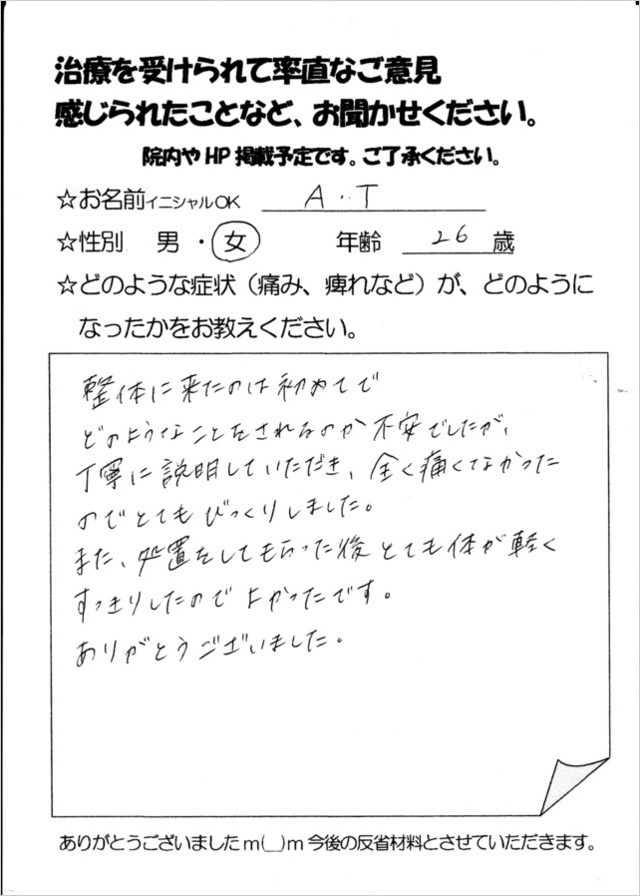 治療を受けられて率直なご意見
感じられたことなど、お聞かせください。
院内やHP掲載予定です。ご了承ください。
☆お名前イニシャルOK A.T
☆性別 男・女 年齢 26 歳
☆どのような症状（痛み、痺れなど）が、どのように
なったかをお教えください。
整体に来たのは初めてで
どのようなことをされるのか不安でしたが、
丁寧に説明していただき、全く痛くなかった
のでとてもびっくりしました。
また、処置をしてもらった後とても体が軽く
すっきりしたのでよかったです。
ありがとうございました。
ありがとうございましたm(__)m今後の反省材料とさせていただきます。